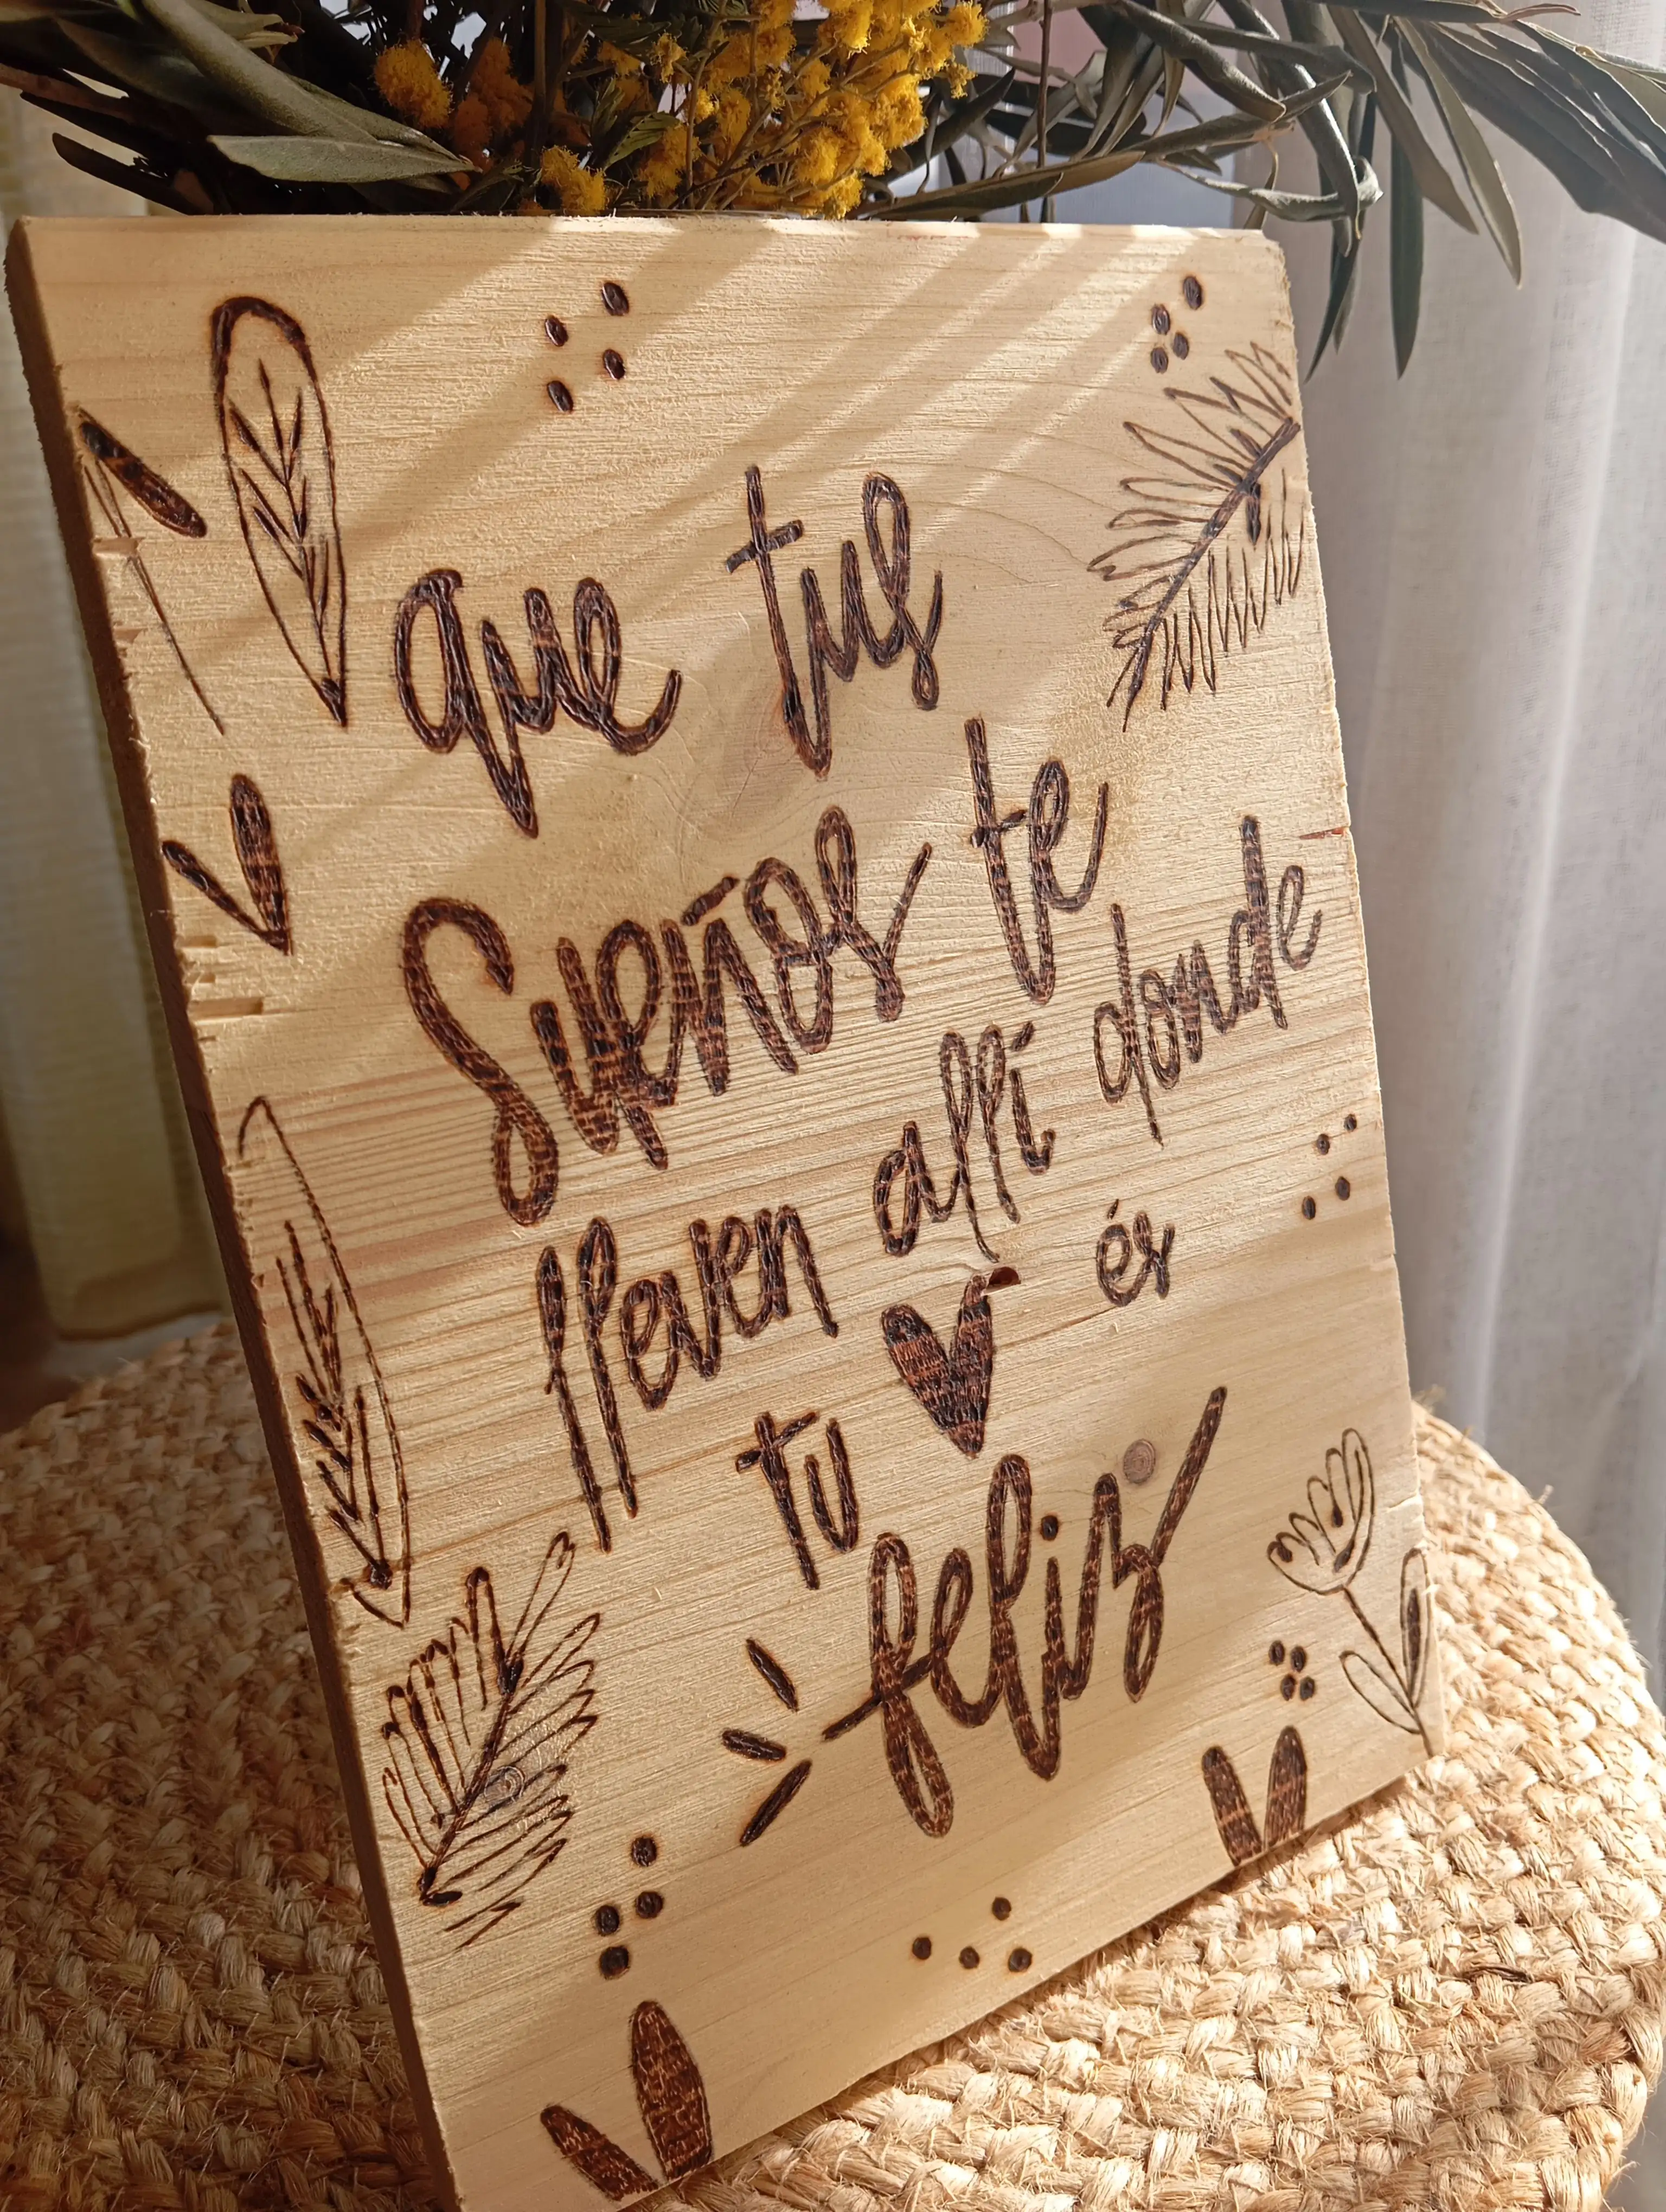 que tus
Sueños te
lleven allí donde
tu ér
feliz